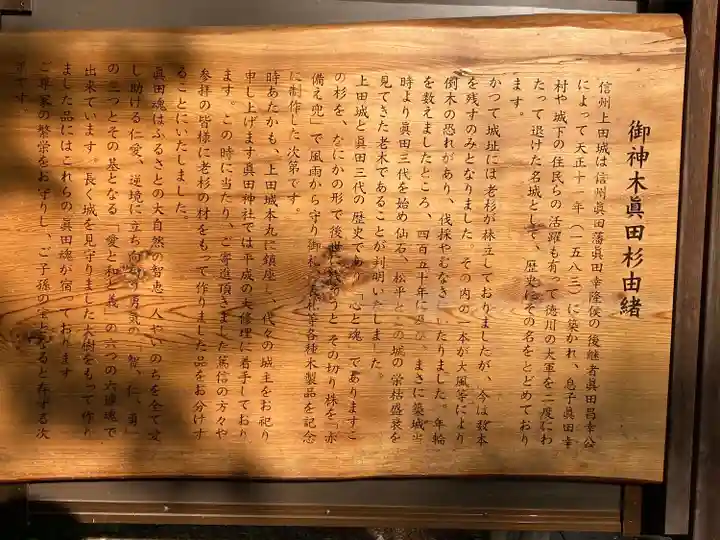 御神木眞田杉由緒
信州上田城は信州眞田藩眞田幸隆侯の後継者眞田昌幸公
によって天正十一年（一五八三）に築かれ、息子眞田幸
村や城下の住民らの活躍も有って徳川の大軍を二度にわ
たって退けた名城として、歴史にその名をとどめており
ます。
かつて城址には老杉が林立しておりましたが、今は数本
を残すのみとなりました その内の一本が大風等により
倒木の恐れがあり、伐採やむなきに いたりました。年輪
を数えましたところ、四百五十年に まさに築城当
時より眞田三代を始め仙石、松平と の城の栄枯盛衰を
見てきた老木であることが判明いたしました。
上田城と眞田三代の歴史であり「心と魂 でありますこ
の杉を、なにかの形で後世に うと その切り株を「赤
備え兜」で風雨から守り御礼 各種木製品を記念
に制作した次第です。
時あたかも、上田城本丸に鎮座し、代々の城主をお祀り
申し上げます眞田神社では平成の大修理に着手しており
ます。この時に当たり、ご寄進頂きました篤信の方々や
参拝の皆様に老杉の材をもって作りました品をお分けす
ることにいたしました。
眞田魂はふるさとの大自然の智恵 人やいのちを全て愛
し助ける仁愛、逆境に立ち向かう勇気の「智、仁、勇」
の三つとその基となる「愛と和と義」の六つの六連魂で
出来ています。長く城を見守りました大樹をもって作り
ました品にはこれらの眞田魂が宿っております
ご尊家の繁栄をお守りし、ご子孫の宝となると存ずる次
第です。